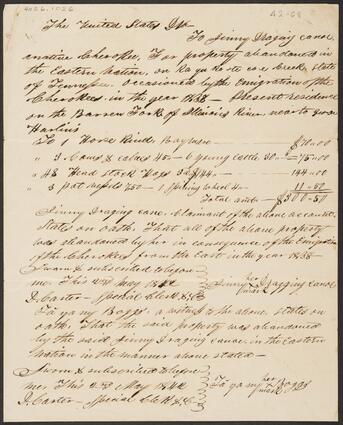 4026.1026
A2-68
The United States Dr
To Jinny Draging canoe
a native Cherokee, For property abandoned in
the Eastern Nation, on creek, State
of Tennessee, occasioned by the Emigration of the
Cherokees, in the year 1838 – Present residence
on the Barren Fork of Illinois River near to
Harlins
To 1 Horse Kind Bay mare — $70=00
" 3 Cows & calves 45 — 6 young cattle 30 = 75=00
" 48 Head stock Hogs 3 $144 — 144=00
" 3 pot vessels 750 – 1 spining wheel 4 — 11=50
Total amt — $300=50
Jinny Draging canoe, Claimant of the above account
States on oath, That all of the above property
was abandoned by her in consequence of the Emigration
of the Cherokees from the East in the year 1838
Sworn & subscribed before
me This May 1842
Jinny her mark Dragging canoe
J. Carter – Special Clerk &C
Ta ya ny Boggs, a witness to the above, states on
oath, That the said property was abandoned
by the said Jinny Draging canoe, in the Eastern
Nation in the manner above stated –
Sworn & subscribed before
me This May 1842
Ta ya ny her mark Boggs
J. Carter – Special Clerk &C